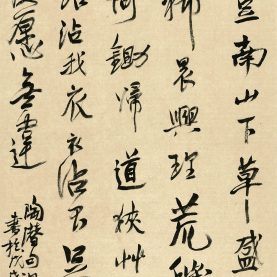 豆南山下草盛
稀晨興理荒穢
荷鋤歸道狹艸
沾我衣衣沾不足
願無違
陶潛句
書於戊